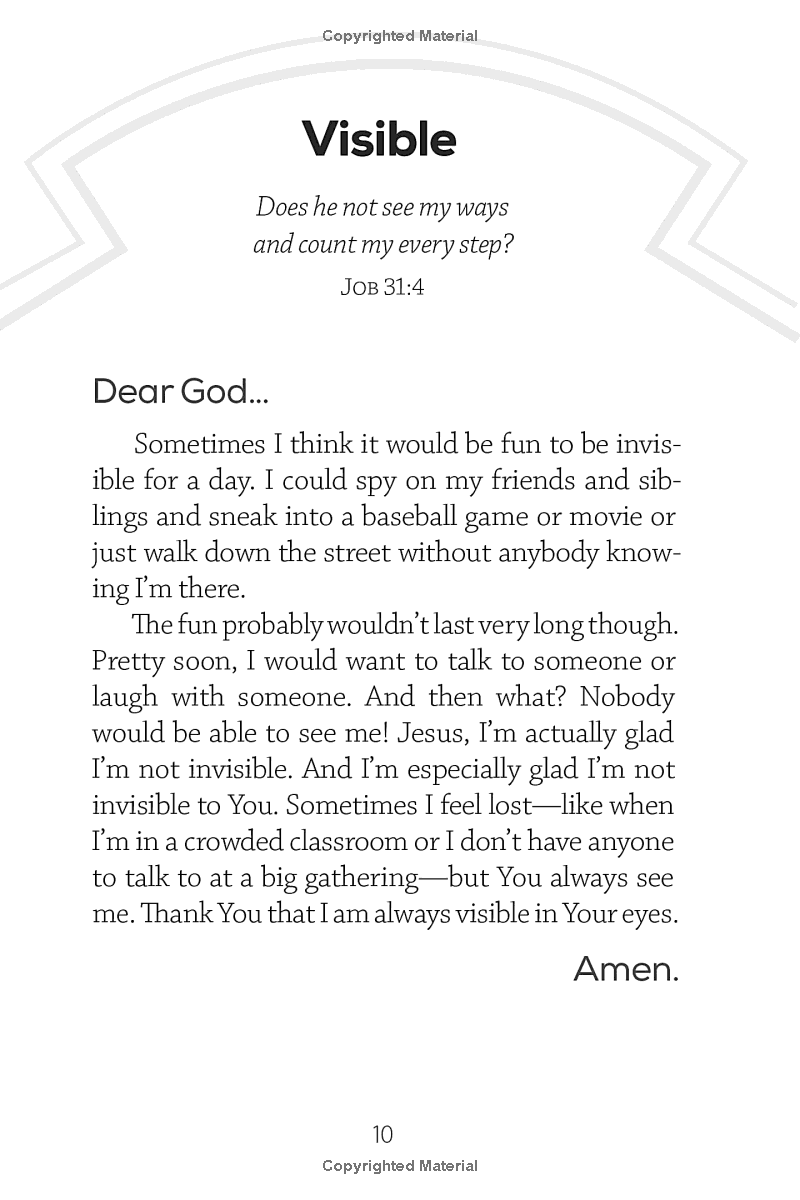 Copyrighted Material
Visible
Does he not see my ways
and count my every step?
Job 31:4
Dear God...
Sometimes I think it would be fun to be invis-
ible for a day. I could spy on my friends and sib-
lings and sneak into a baseball game or movie or
just walk down the street without anybody know-
ing I'm there.
The fun probably wouldn't last very long though.
Pretty soon, I would want to talk to someone or
laugh with someone. And then what? Nobody
would be able to see me! Jesus, I'm actually glad
I'm not invisible. And I'm especially glad I'm not
invisible to You. Sometimes I feel lost—like when
I'm in a crowded classroom or I don't have anyone
to talk to at a big gathering—but You always see
me. Thank You that I am always visible in Your eyes.
Amen.
10
Copyrighted Material